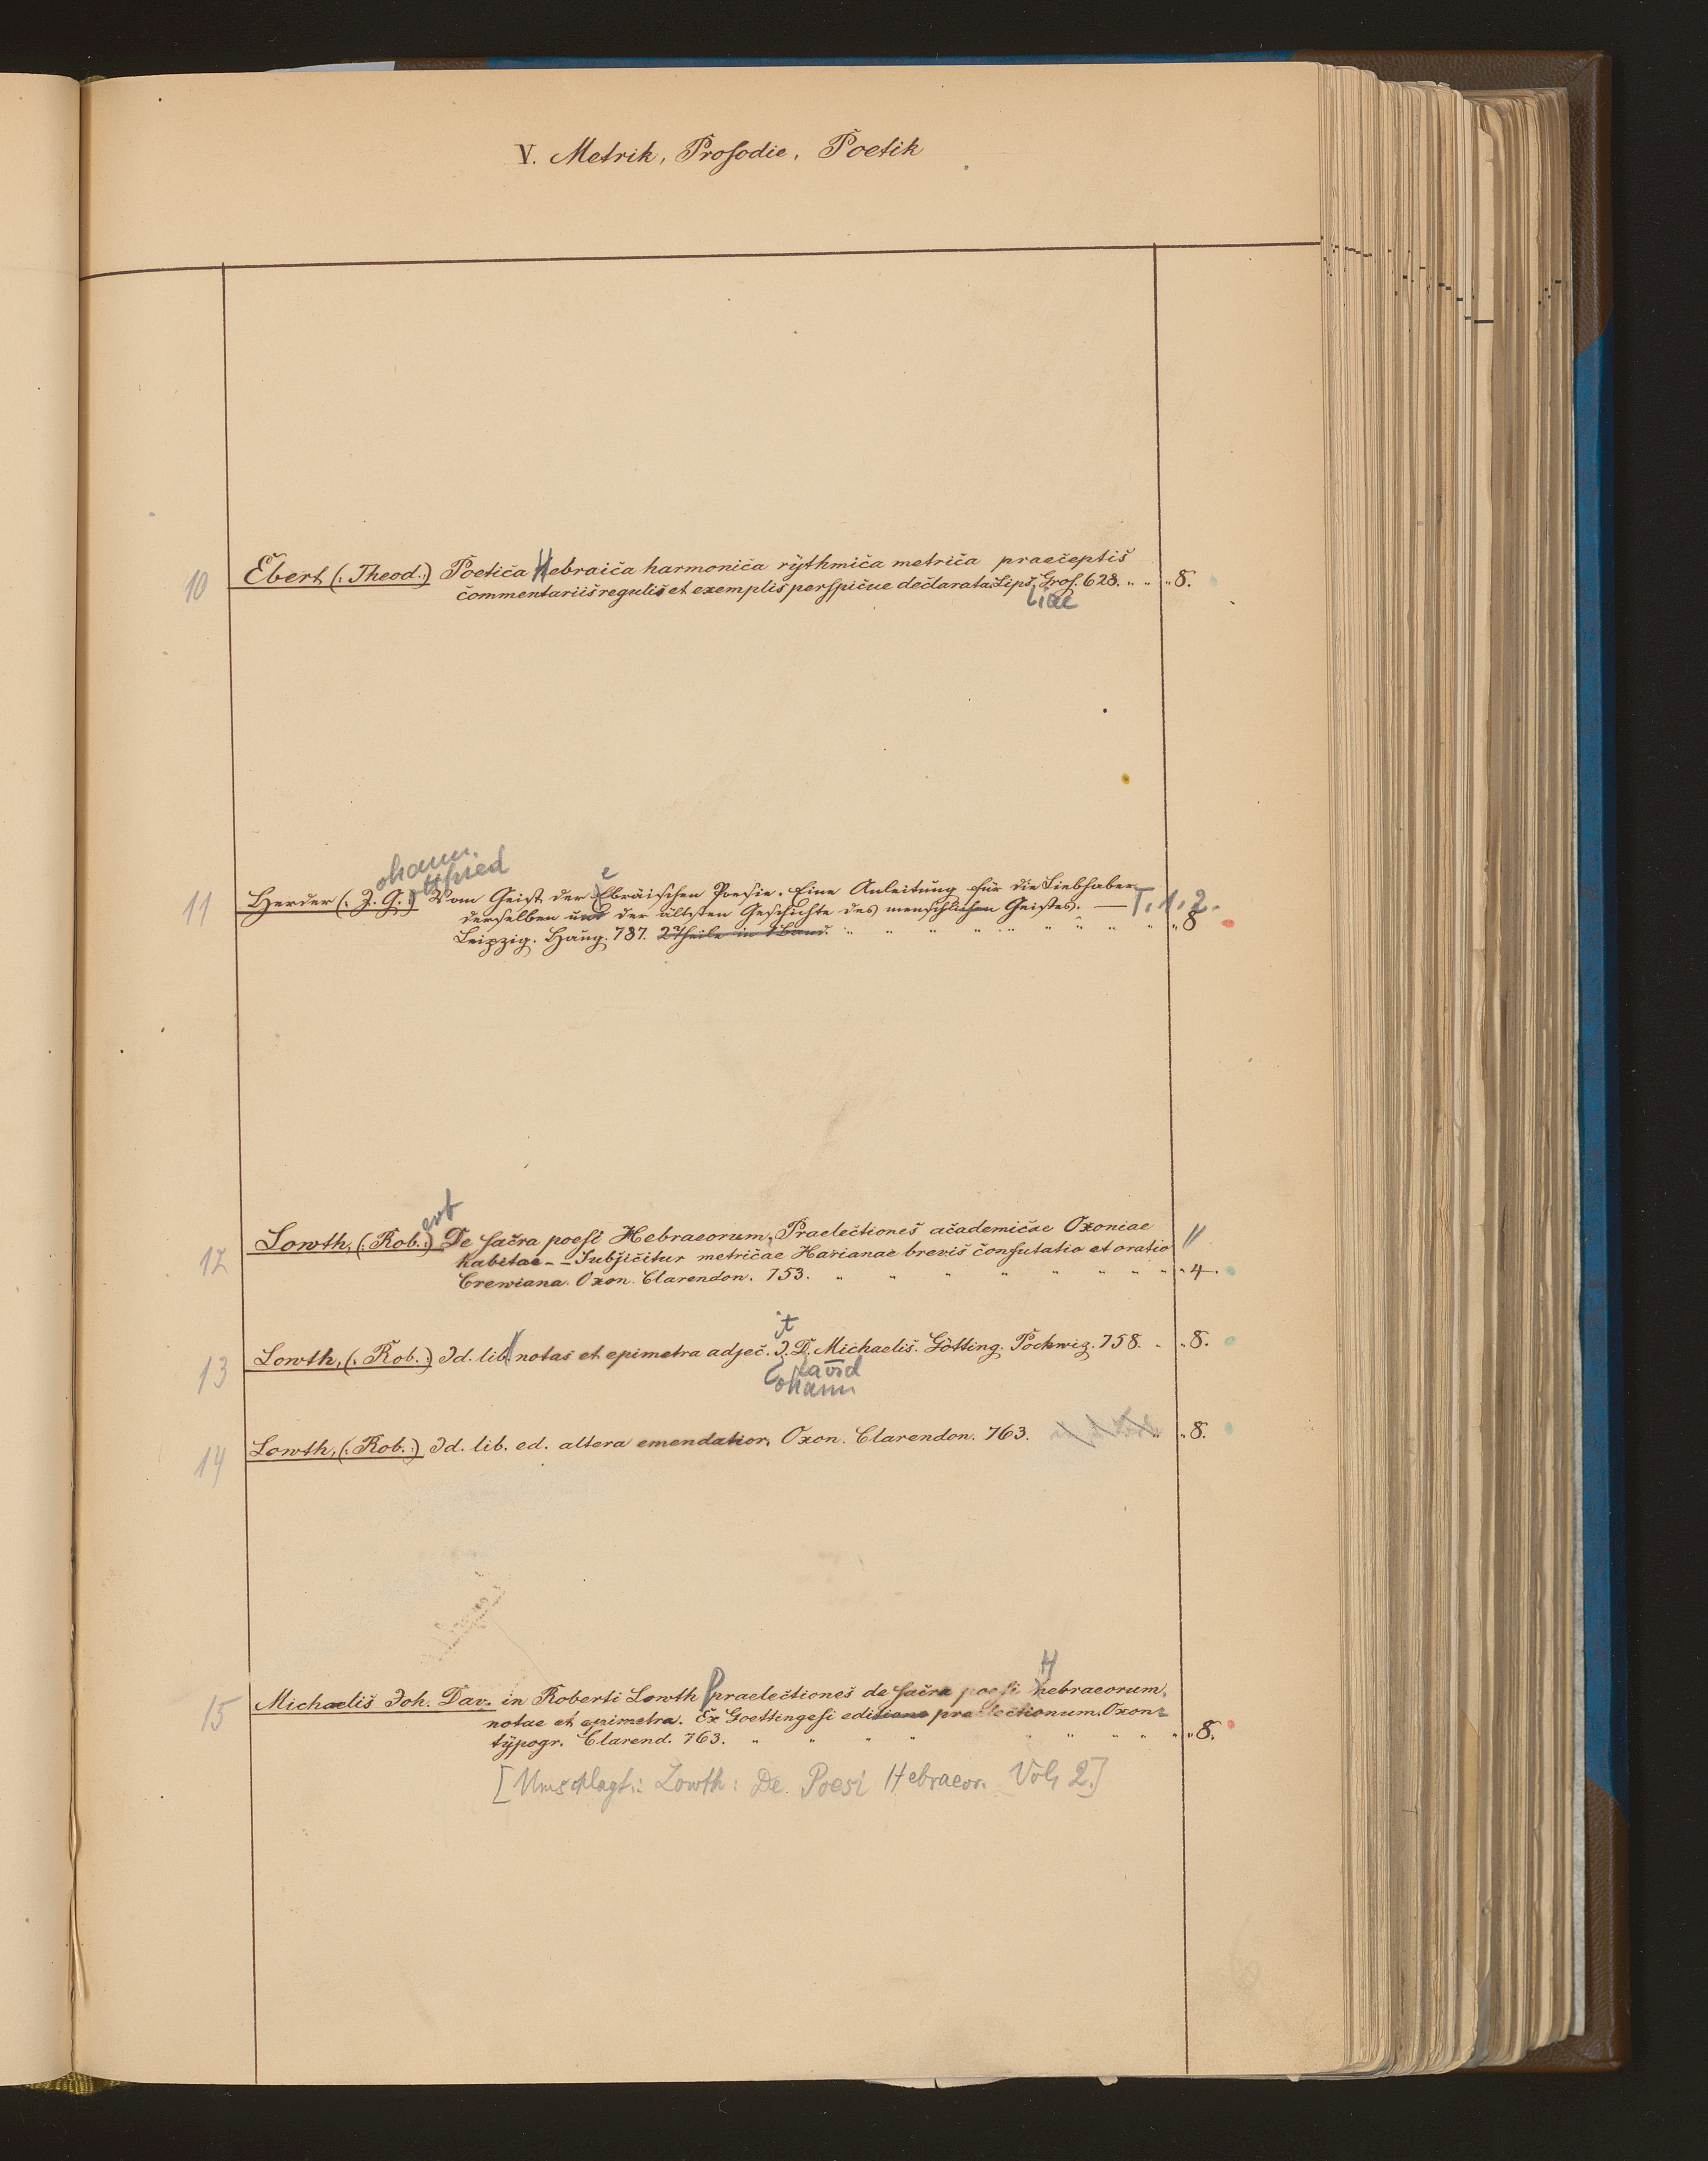 V. Metrik, Prosodie, Poetik
10 Ebert (: Theod.:) Poetica Hebraica harmonica rÿthmica metrica praeceptis
commentariis regulis et exemplis perspicue declarata. Lips. Gros. 628. " " " 8.
siae
ohann
ottfried
e
11 Herder (: J. G. :) Vom Geist der Ebräischen Poesie. Eine Anleitung für die Liebhaber
derselben und der ältesten Geschichte des menschlichen Geistes. — T. 1. 2.
Leipzig. Haug. 787. 2 Theile in 1 Band. " " " " " " " " " 8
ert
12 Lowth, (: Rob. :) De sacra poesi Hebraeorum, Praelectiones academicae Oxoniae
habitae - - Subjicitur metricae Harianae brevis confutatio et oratio
Crewiana. Oxon. Clarendon. 753. " " " " " " " " 4.
it
13 Lowth, (: Rob. :) Id. lib. notas et epimetra adjec. J. D. Michaelis. Götting. Pockwiz. 758. " " 8.
avid
ohann
14 Lowth, (: Rob. :) Id. lib. ed. altera emendatior. Oxon. Clarendon. 763. " " 8.
H
15 Michaelis Joh. Dav. in Roberti Lowth praelectiones de sacra poesi hebraeorum,
notae et epimetra. Ex Goettingesi editione praelectionum. Oxon.
tÿpogr. Clarend. 763. " " " " " " " " " 8.
[Umschlagt.: Lowth: De Poesi Hebraeor. Vol. 2.]